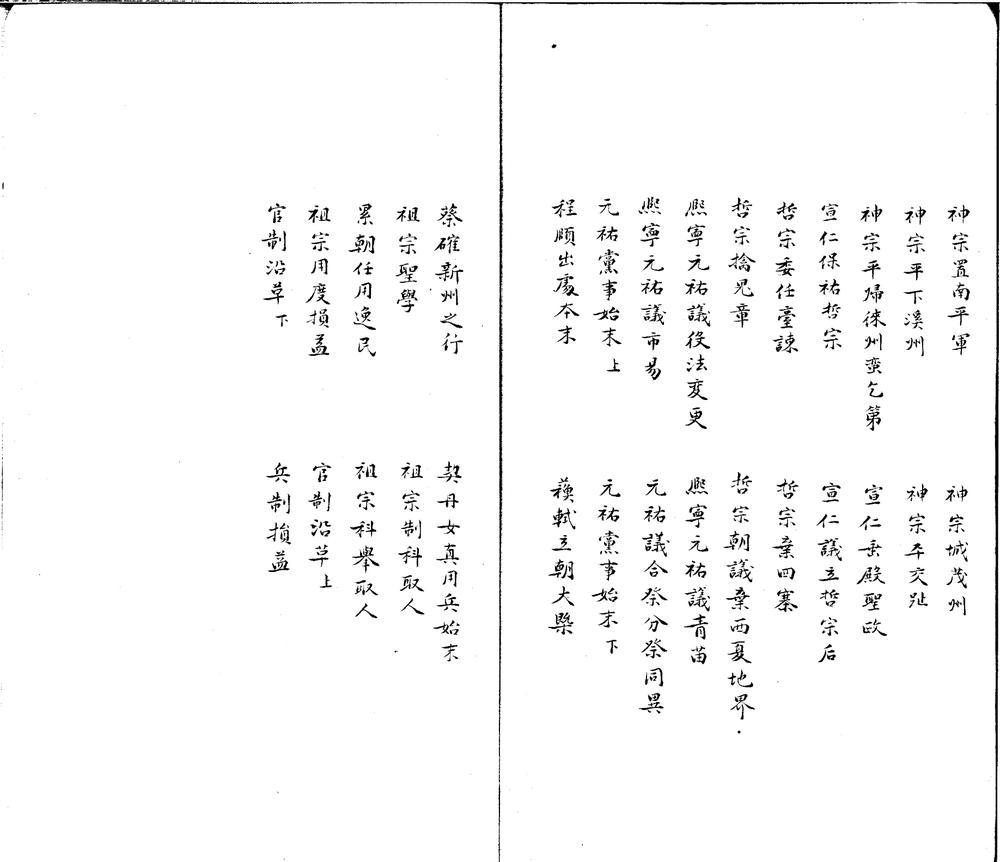 神宗置南平軍　神宗城茂州
神宗平下溪州　神宗平交趾
神宗平歸徠州蛮乞第　宣仁垂殿聖政
宣仁保祐哲宗　宣仁議立哲宗后
哲宗委任臺諫　哲宗棄四寨
哲宗擒鬼章　哲宗朝議棄西夏地界
熈寧元祐議役法变更　熈寧元祐議青苗
熈寧元祐議市易　元祐議合祭分祭同異
元祐黨事始末上　元祐黨事始末下
程頤出處夲末　蘇軾立朝大槩
蔡確新州之行　契丹女真用兵始末
祖宗聖學　祖宗制科取人
累朝任用逸民　祖宗科舉取人
祖宗用度損益　官制沿革上
官制沿革下　兵制損益